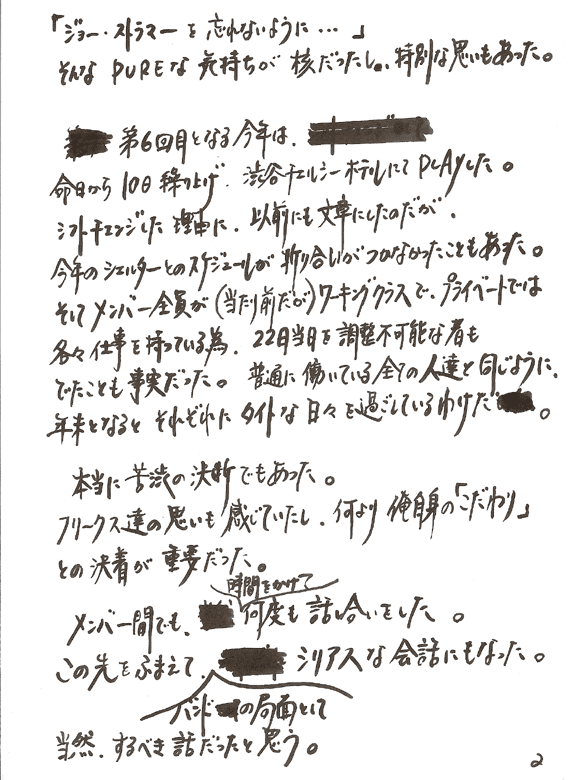 「ジョー・ストラマーを忘れないように…」
そんなPUREな気持ちが核だったし、特別な思いもあった。
第6回目となる今年は、
命日から10日繰り上げ、渋谷チェルシーホテルにてPLAYした。
シフトチェンジした理由に、以前にも文章にしたのだが、
今年のシェルターとのスケジュールが折り合いがつかなかったこともあった。
そしてメンバー全員が(当たり前だが)ワーキングクラスで、プライベートでは
各々仕事を持っている為、22日当日を調整不可能な者も
でたことも事実だった。普通に働いている全ての人達と同じように、
年末となるとそれぞれにタイトな日々を過ごしているわけだ。
本当に苦渋の決断でもあった。
フリークス達の思いも感じていたし、何より俺自身の「こだわり」
との決着が重要だった。
時間をかけて
メンバー間でも、何度も話し合いをした。
この先をふまえて、シリアスな会話にもなった。
バンドの局面として
当然、するべき話だったと思う。
2